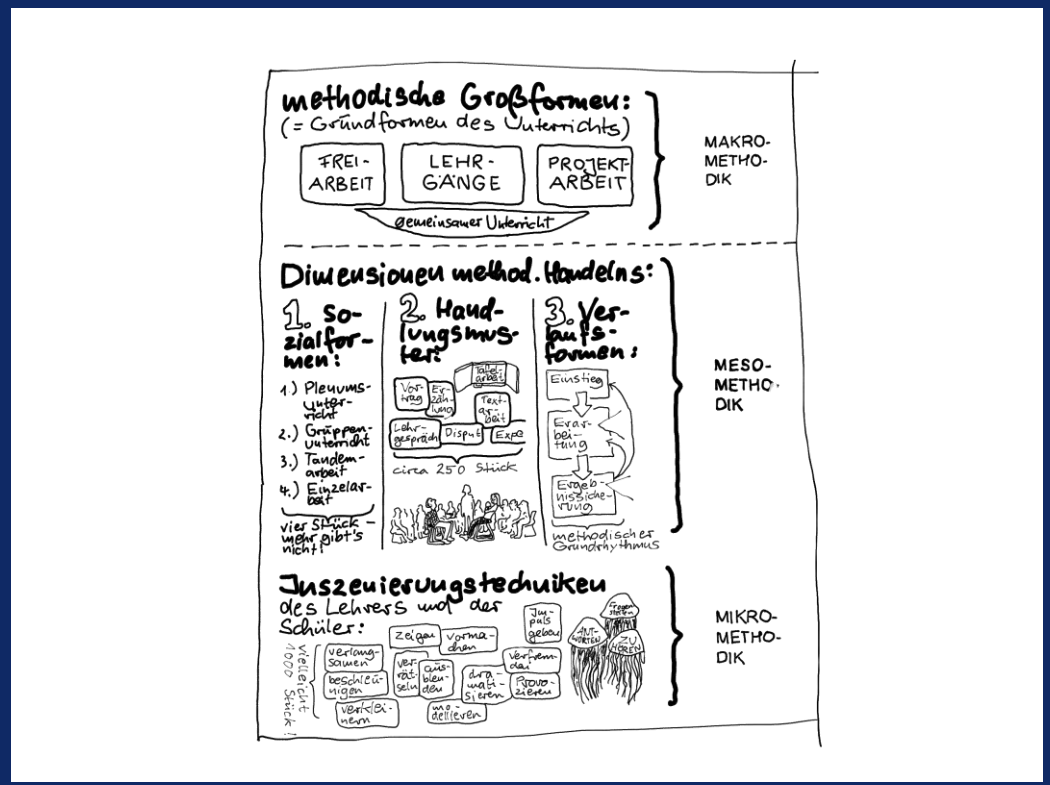 methodische Großformen:
(= Grundformen des Unterrichts)
FREI-
ARBEIT
LEHR-
GÄNGE
PROJEKT-
ARBEIT
gemeinsamer Unterricht
MAKRO-
METHO-
DIK
Dimensionen method. Handelns:
1. So-
zialfor-
men:
1.) Plenums-
unter-
richt
2.) Gruppen-
unterricht
3.) Tandem-
arbeit
4.) Einzelar-
beit
vier Stück –
mehr gibt's
nicht!
2. Hand-
lungsmus-
ter:
Vor-
trag
Er-
zäh-
lung
Tafel-
arbeit
Text-
ar-
beit
Lehr-
gespräch
Disput
Expe
circa 250 Stück
3. Ver-
laufs-
formen:
Einstieg
Erar-
bei-
tung
Ergeb-
nissiche-
rung
methodischer
Grundrhythmus
MESO-
METHO-
DIK
Inszenierungstechniken
des Lehrers und der
Schüler:
vielleicht
1000 Stück!
verlang-
samen
beschleu-
nigen
verklei-
nern
zeigen
vorma-
chen
ver-
rät-
seln
aus-
blen-
den
mo-
dellieren
dra-
mati-
sieren
Im-
puls
geben
verfrem-
den
Provo-
zieren
Fragen
stellen
ANT-
WORTEN
ZU
HÖREN
MIKRO-
METHO-
DIK